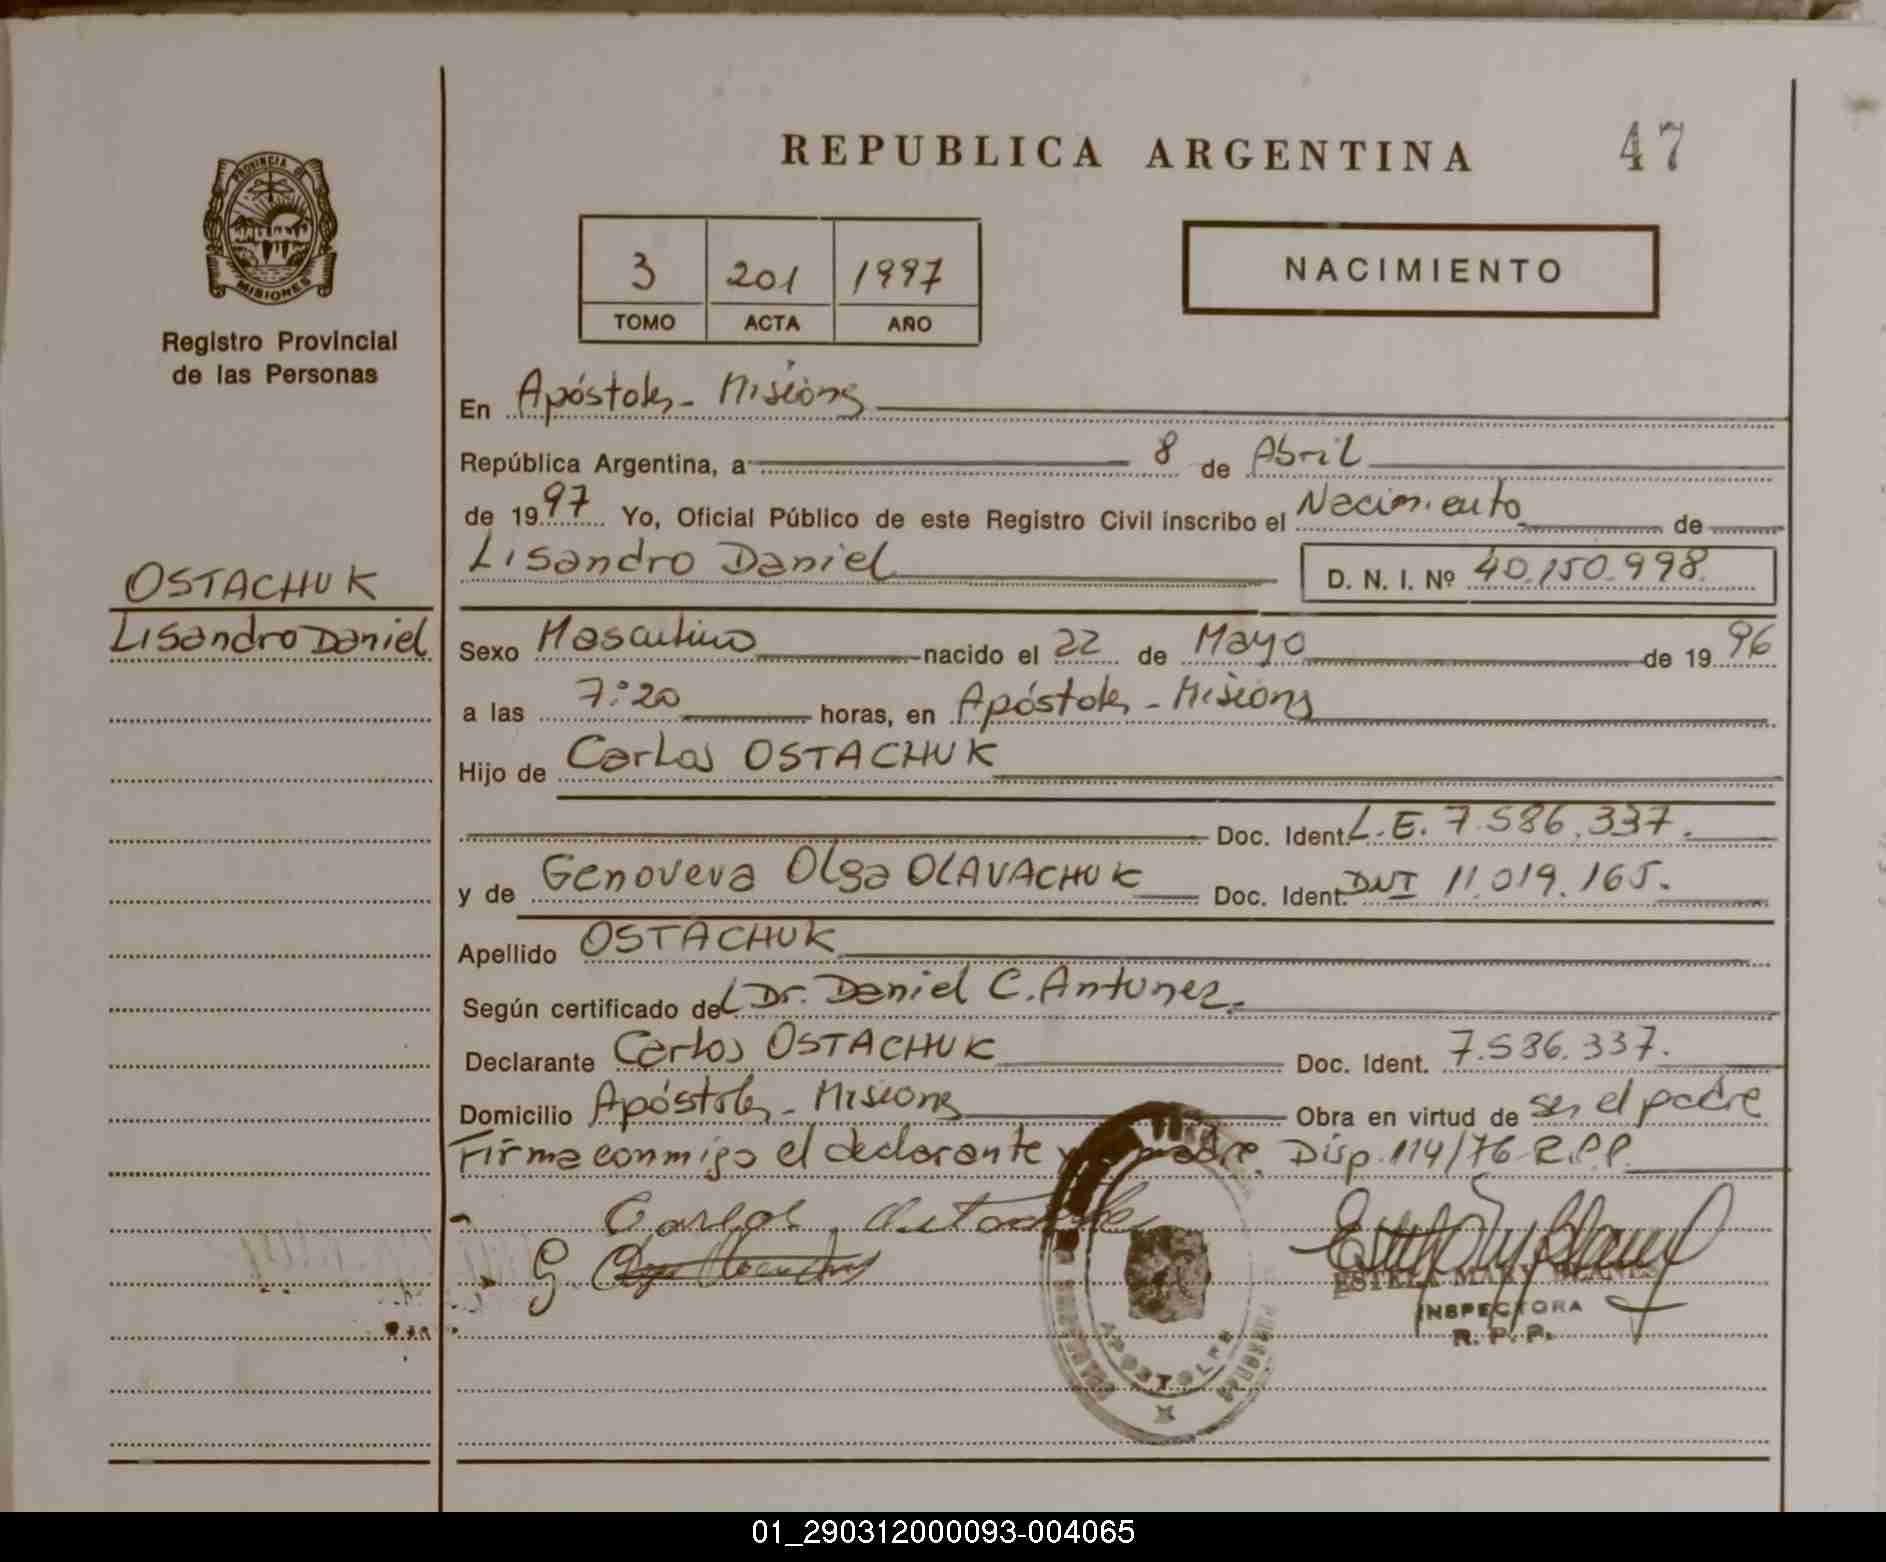 REPUBLICA ARGENTINA 47
PROVINCIA DE
MISIONES
Registro Provincial
de las Personas
3 201 1997
TOMO ACTA AÑO
NACIMIENTO
En Apóstoles - Misiones
República Argentina, a 8 de Abril
de 1997 Yo, Oficial Público de este Registro Civil inscribo el Nacimiento de
Lisandro Daniel D. N. I. Nº 40.150.998
OSTACHUK
Lisandro Daniel
Sexo Masculino nacido el 22 de Mayo de 1996
a las 7:20 horas, en Apóstoles - Misiones
Hijo de Carlos OSTACHUK
Doc. Ident. L.E. 7.586.337.
y de Genoveva Olga OLAVACHUK Doc. Ident. DNI 11.019.165.
Apellido OSTACHUK
Según certificado del Dr. Daniel C. Antunez.
Declarante Carlos OSTACHUK Doc. Ident. 7.586.337.
Domicilio Apóstoles - Misiones Obra en virtud de ser el padre
Firma conmigo el declarante y madre. Disp. 114/76 R.P.P.
Carlos
G.
ESTELA
INSPECTORA
R. P. P.
APOSTOLES
01_290312000093-004065